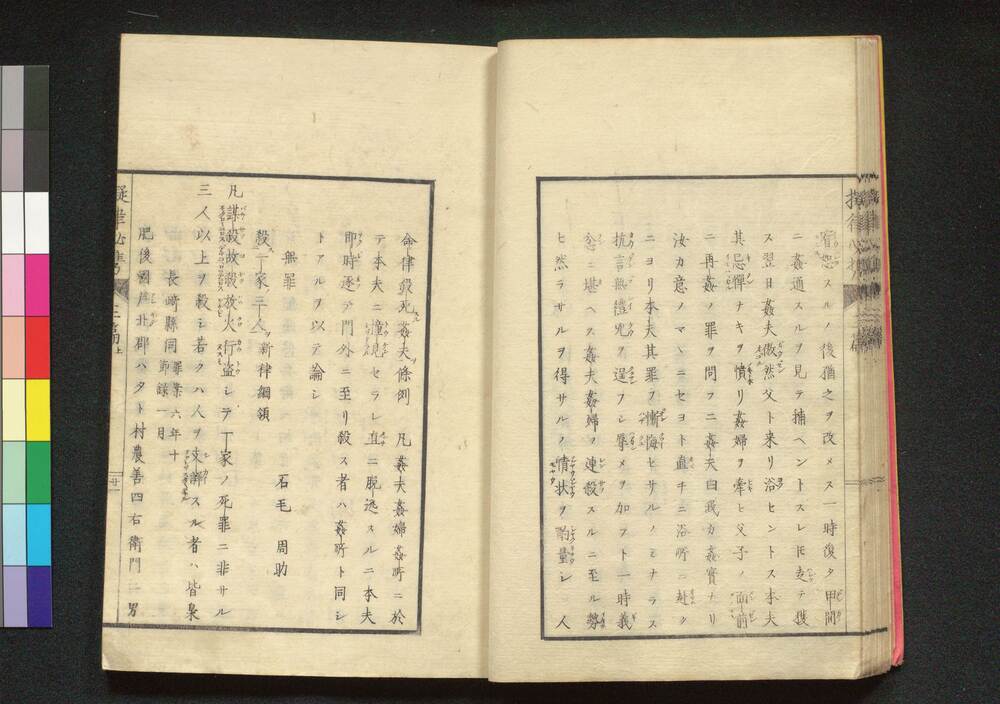 宥恕スルノ後猶之ヲ改メス一時復タ甲間
ニ姦通スルヲ見テ捕ヘントスレ𪜈走テ獲
ス翌日姦夫傲然父ト来リ浴セントス本夫
其忌憚ナキヲ憤リ姦婦ヲ牽ヒ父子ノ面前
ニ再姦ノ罪ヲ問フニ姦夫曰我カ姦實ナリ
汝カ意ノマヽニセヨト直チニ浴所ニ赴ク
ニヨリ本夫其罪ヲ慚悔セサルノミナラス
抗言無禮兇ヲ逞フシ辱メヲ加フト一時義
忿ニ堪ヘス姦夫姦婦ヲ連殺スルニ至ル勢
ヒ然ラサルヲ得サルノ情状ヲ酌量シ 人
命律殺死姦夫ノ條例 凡姦夫姦婦姦所ニ於
テ本夫ニ撞見セラレ直ニ脱逃スルニ本夫
即時逐テ門外ニ至リ殺ス者ハ姦所ト同シ
トアルヲ以テ論シ
無罪 石毛 周助
殺一家三人 新律綱領
凡謀殺故殺放火行盗シテ一家ノ死罪ニ非サル
三人以上ヲ殺シ若クハ人ヲ支解スル者ハ皆梟
長崎縣伺 罪案六年十
即録一月
肥後國芦北郡ハタト村農善四右衛門二男
三篇上
廿